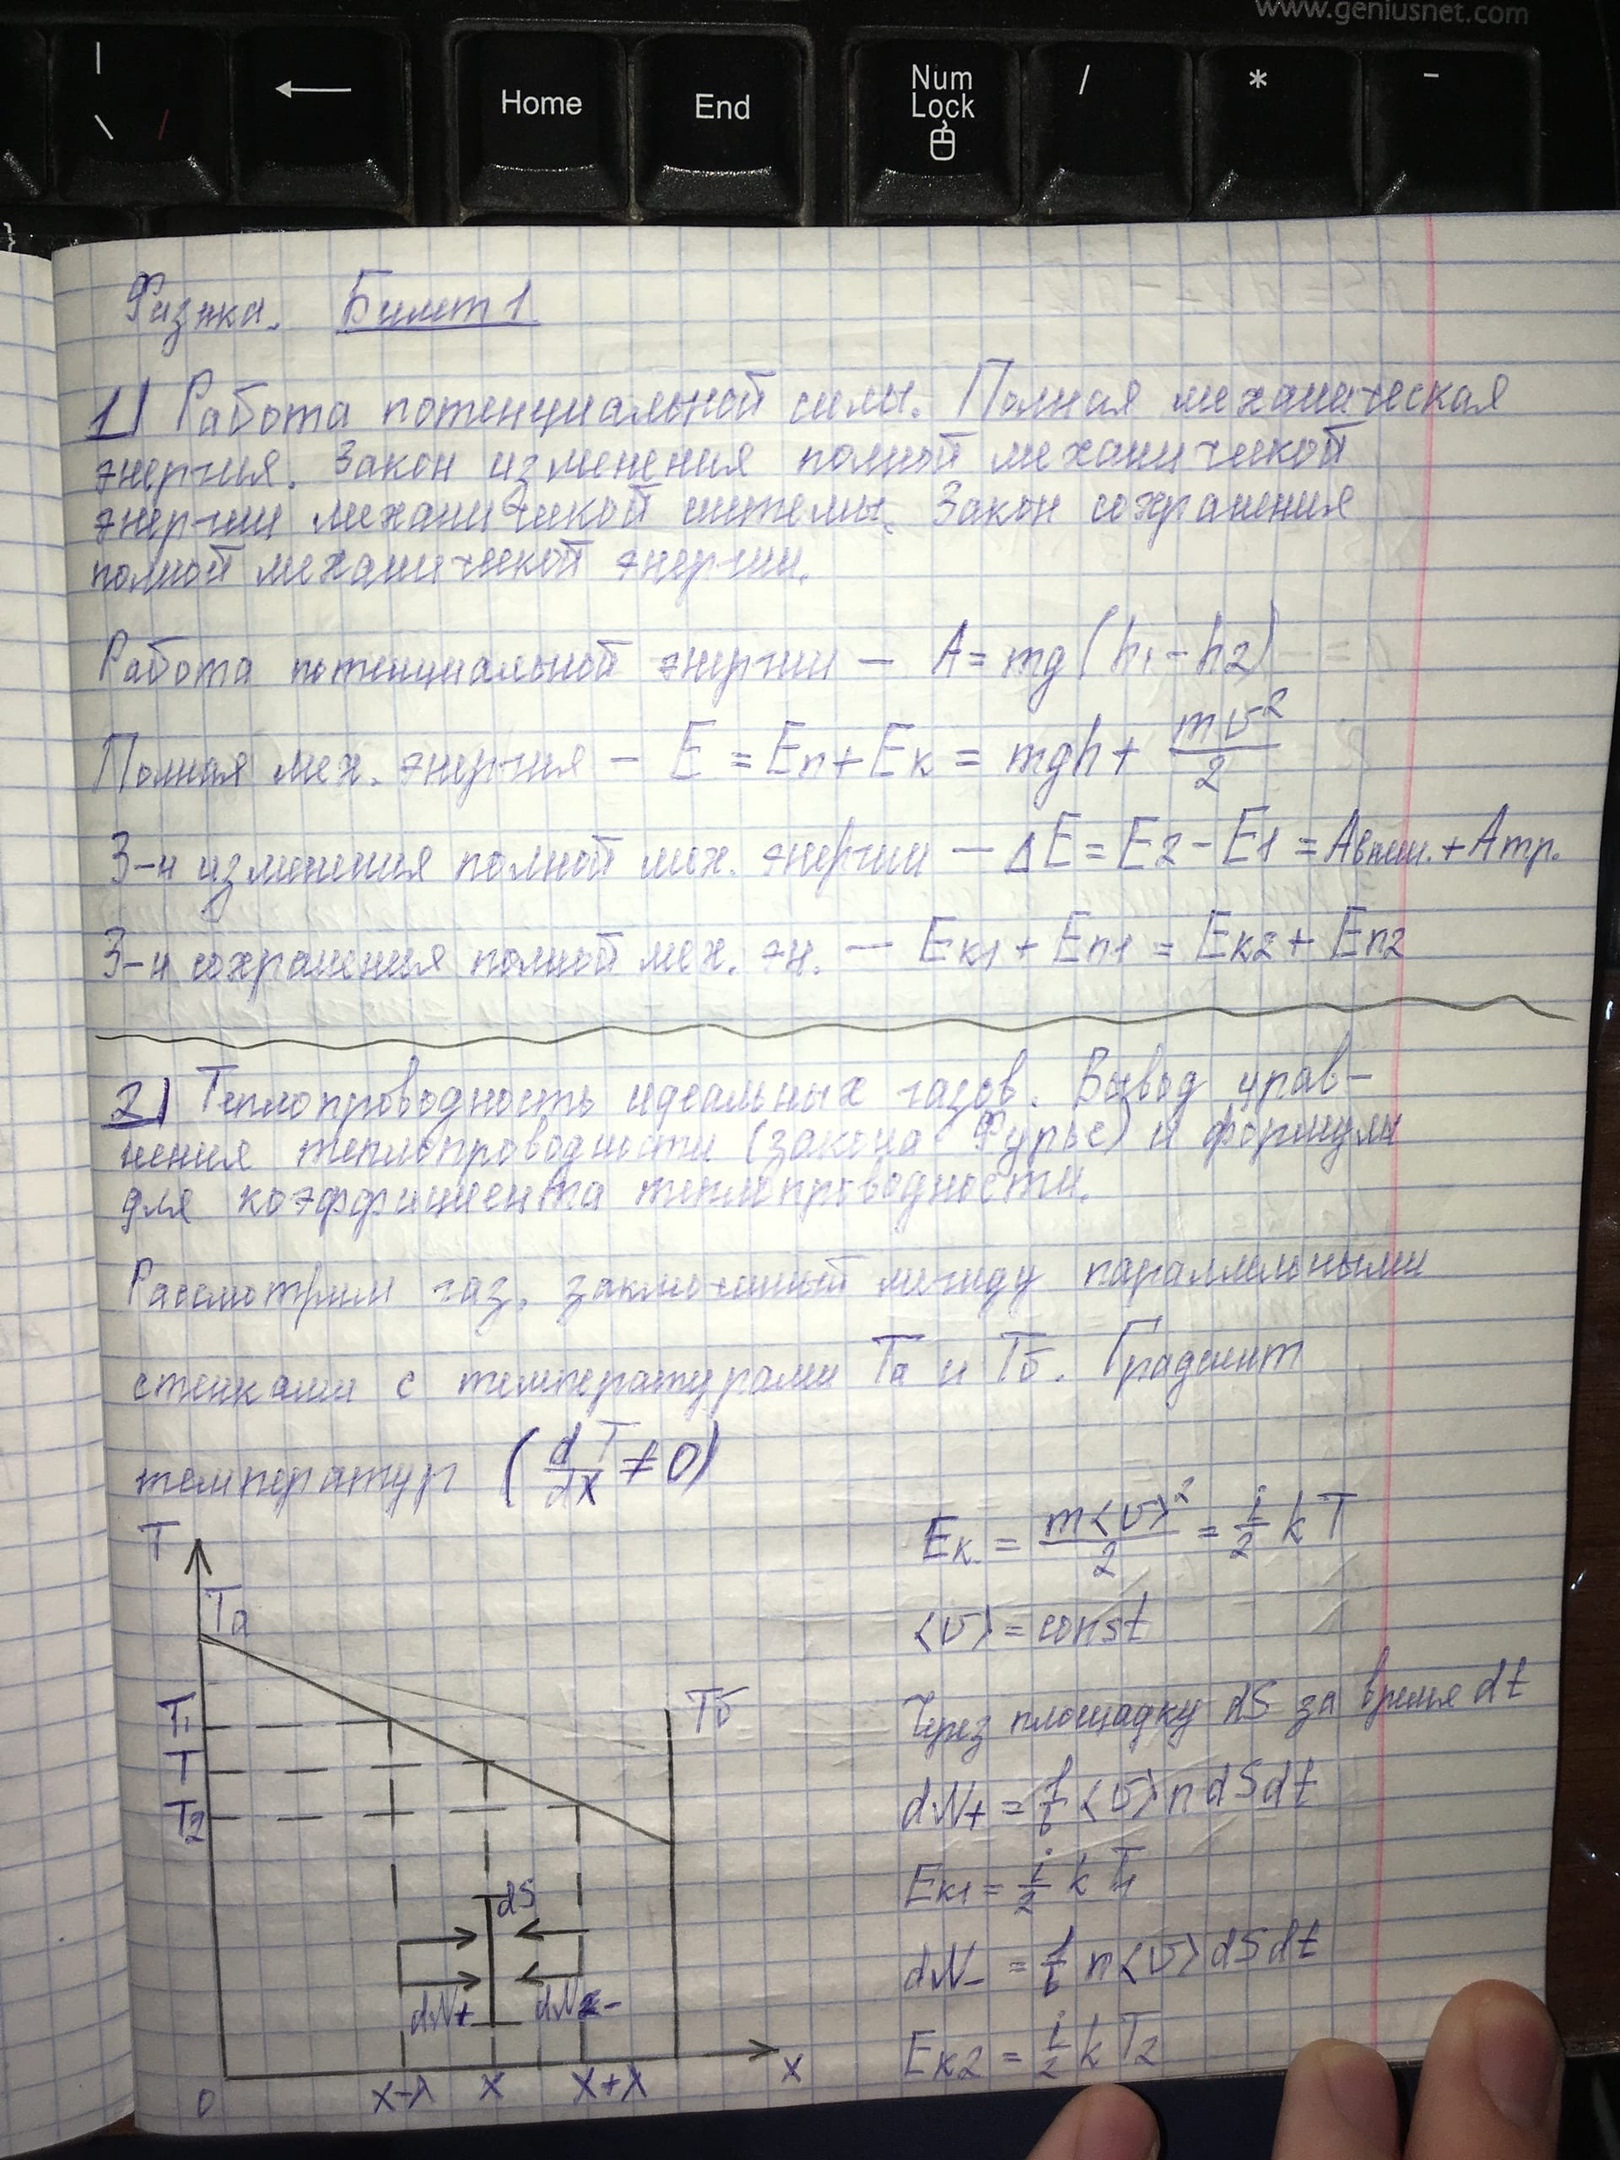 www.geniusnet.com
|
\ /
←
Home
End
Num
Lock
/
*
-
}
Физика. Билет 1
1) Работа потенциальной силы. Полная механическая
энергия. Закон изменения полной механической
энергии механической системы. Закон сохранения
полной механической энергии.
Работа потенциальной энергии — A = mg(h1 - h2)
Полная мех. энергия — E = Eп + Eк = mgh + mυ²/2
З-н изменения полной мех. энергии — ΔE = E2 - E1 = Aвнеш. + Aтр.
З-н сохранения полной мех. эн. — Eк1 + Eп1 = Eк2 + Eп2
2) Теплопроводность идеальных газов. Вывод урав-
нения теплопроводности (закона Фурье) и формулы
для коэффициента теплопроводности.
Рассмотрим газ, заключенный между параллельными
стенками с температурами Tа и Tб. Градиент
температур (dT/dx ≠ 0)
Eк = m<υ>²/2 = i/2 kT
<υ> = const
Через площадку dS за время dt
dN+ = 1/6 <υ> n dS dt
Eк1 = i/2 k T1
dN- = 1/6 n <υ> dS dt
Eк2 = i/2 k T2
T
Tа
T1
T
T2
Tб
dS
dN+
dN-
0
x-λ
x
x+λ
x